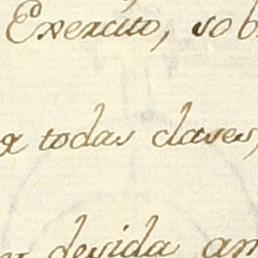 Exercito, sob
a todas clases,
devida am